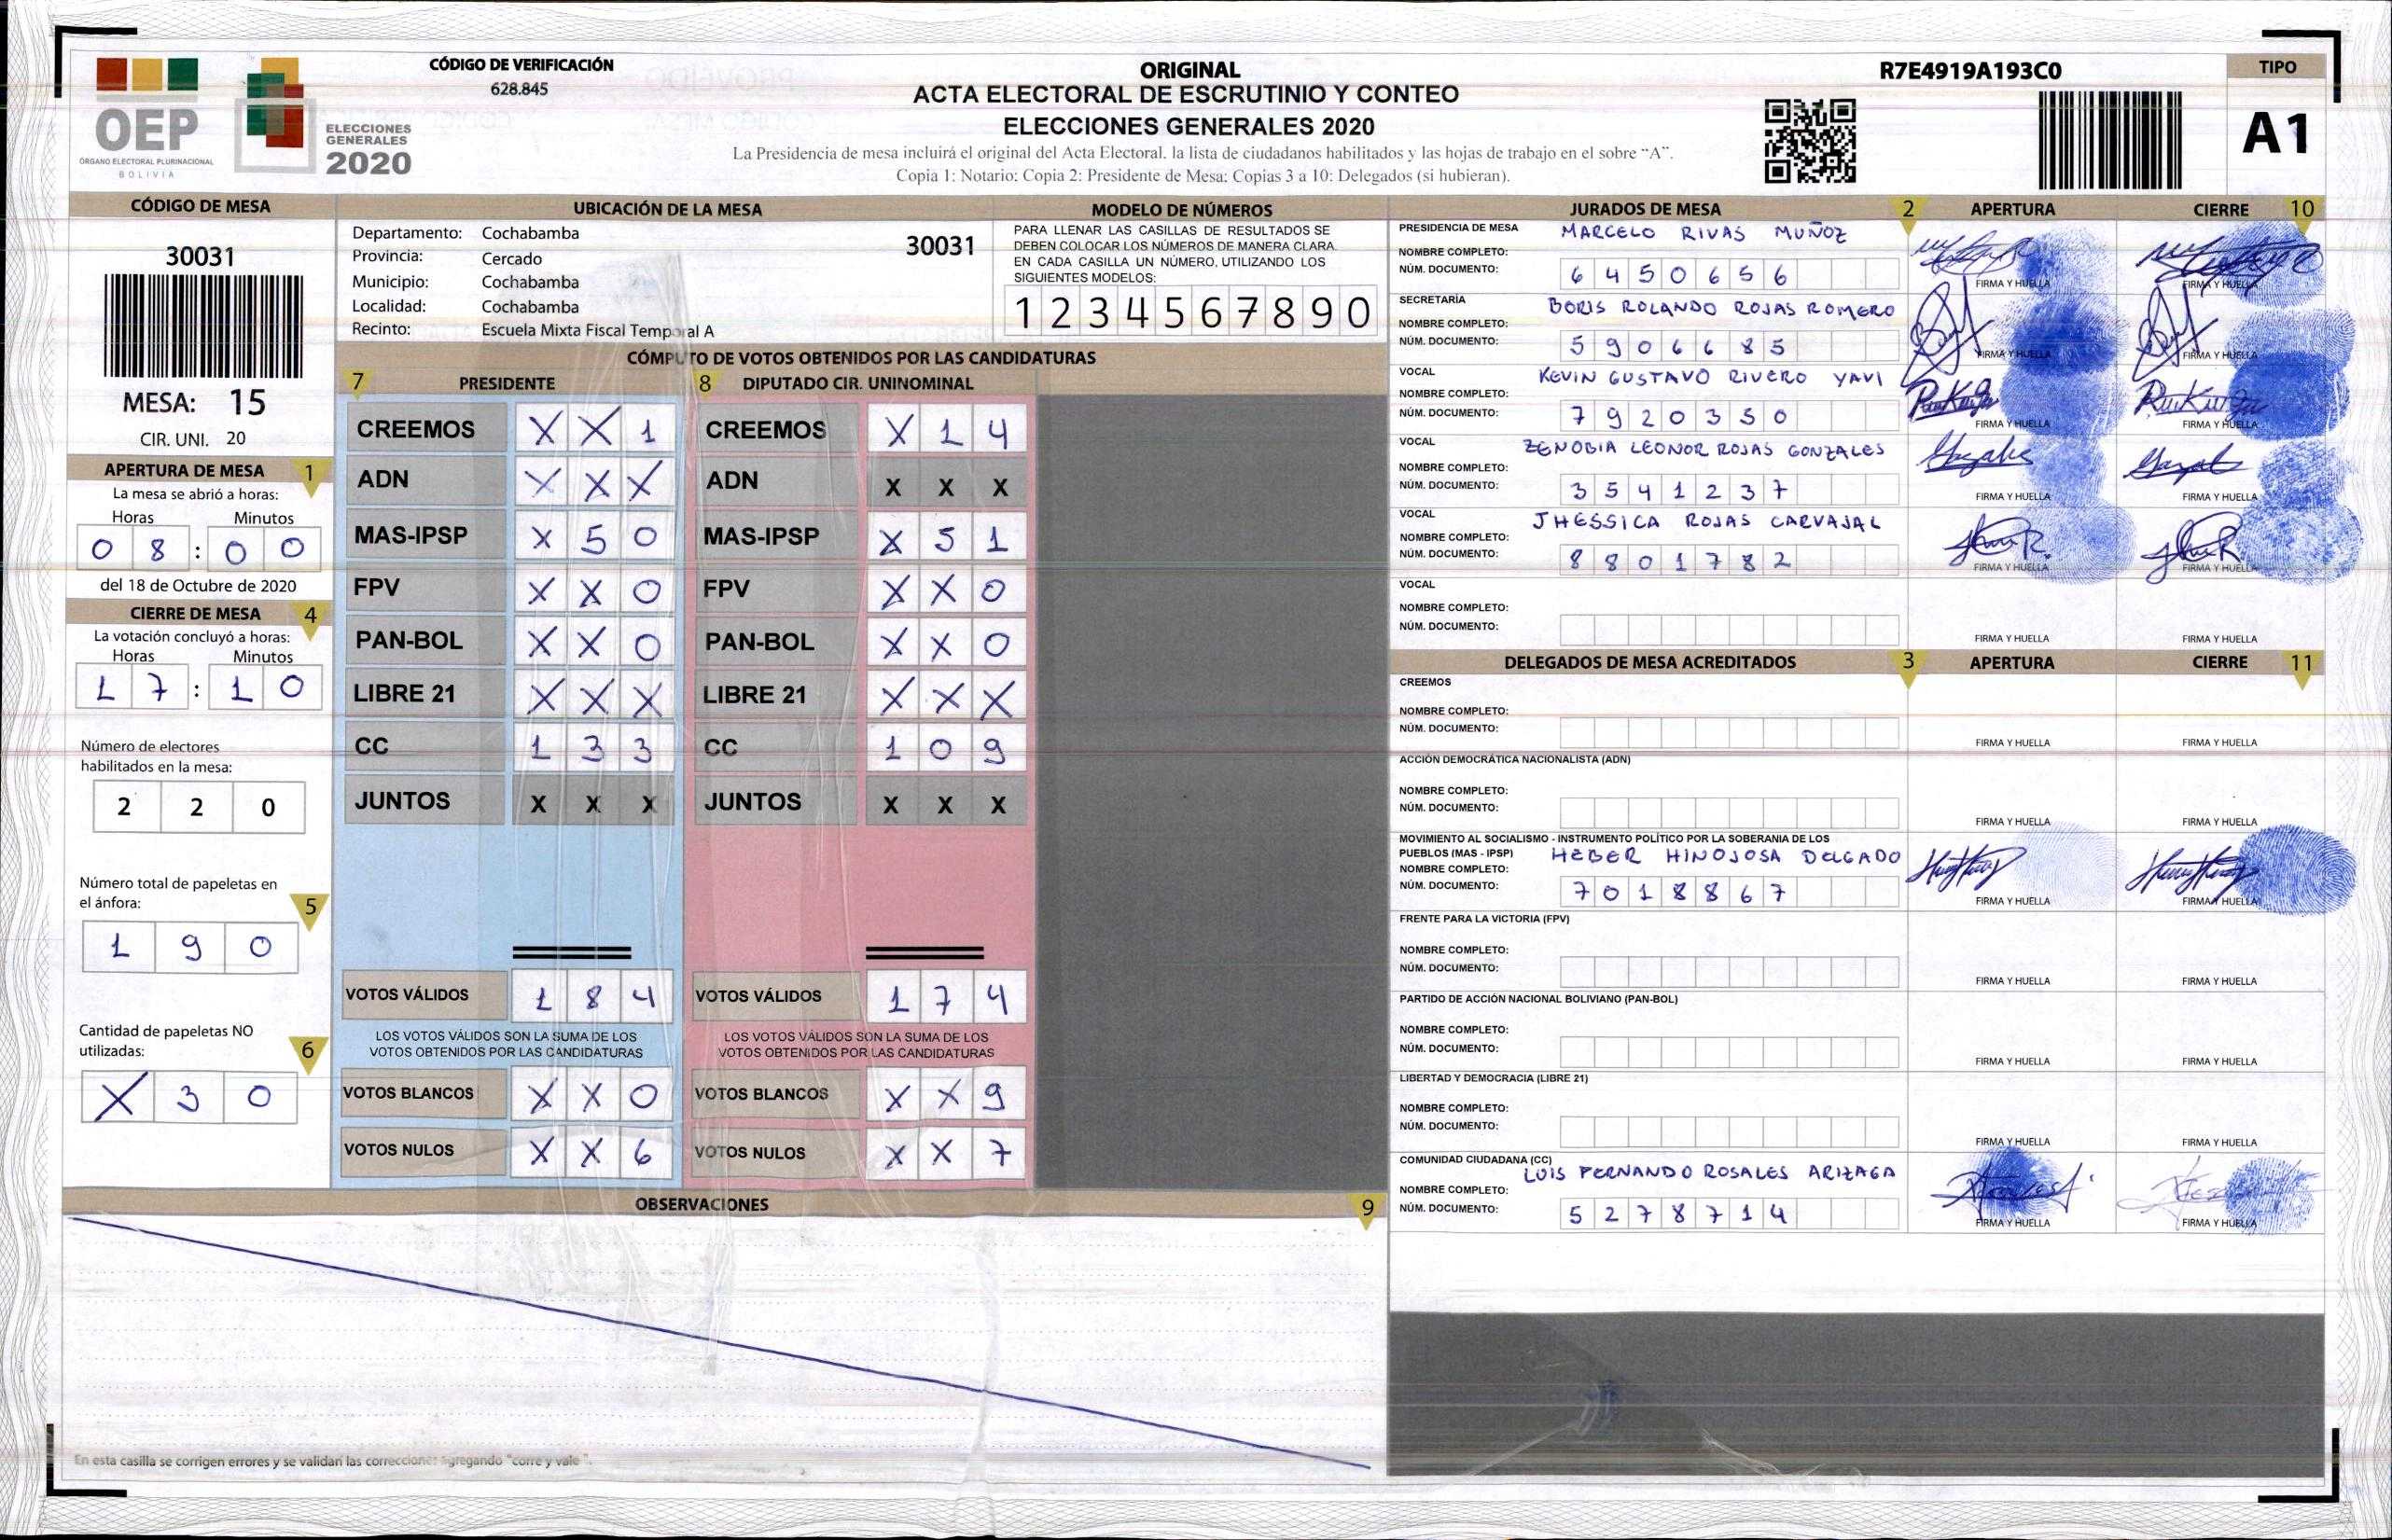 CÓDIGO DE VERIFICACIÓN
628.845
ORIGINAL
ACTA ELECTORAL DE ESCRUTINIO Y CONTEO
ELECCIONES GENERALES 2020
La Presidencia de mesa incluirá el original del Acta Electoral, la lista de ciudadanos habilitados y las hojas de trabajo en el sobre "A".
Copia 1: Notario; Copia 2: Presidente de Mesa; Copias 3 a 10: Delegados (si hubieran).
R7E4919A193C0
TIPO
A1
OEP
ÓRGANO ELECTORAL PLURINACIONAL
BOLIVIA
ELECCIONES
GENERALES
2020
CÓDIGO DE MESA
30031
MESA: 15
CIR. UNI. 20
APERTURA DE MESA 1
La mesa se abrió a horas:
Horas Minutos
0 8 : 0 0
del 18 de Octubre de 2020
CIERRE DE MESA 4
La votación concluyó a horas:
Horas Minutos
1 7 : 1 0
Número de electores
habilitados en la mesa:
2 2 0
Número total de papeletas en
el ánfora: 5
1 9 0
Cantidad de papeletas NO
utilizadas: 6
X 3 0
UBICACIÓN DE LA MESA
Departamento: Cochabamba
30031
Provincia: Cercado
Municipio: Cochabamba
Localidad: Cochabamba
Recinto: Escuela Mixta Fiscal Temporal A
MODELO DE NÚMEROS
PARA LLENAR LAS CASILLAS DE RESULTADOS SE
DEBEN COLOCAR LOS NÚMEROS DE MANERA CLARA.
EN CADA CASILLA UN NÚMERO, UTILIZANDO LOS
SIGUIENTES MODELOS:
1 2 3 4 5 6 7 8 9 0
CÓMPUTO DE VOTOS OBTENIDOS POR LAS CANDIDATURAS
7 PRESIDENTE 8 DIPUTADO CIR. UNINOMINAL
CREEMOS X X 1 CREEMOS X 1 4
ADN X X X ADN X X X
MAS-IPSP X 5 0 MAS-IPSP X 5 1
FPV X X 0 FPV X X 0
PAN-BOL X X 0 PAN-BOL X X 0
LIBRE 21 X X X LIBRE 21 X X X
CC 1 3 3 CC 1 0 9
JUNTOS X X X JUNTOS X X X
VOTOS VÁLIDOS 1 8 4 VOTOS VÁLIDOS 1 7 4
LOS VOTOS VÁLIDOS SON LA SUMA DE LOS LOS VOTOS VÁLIDOS SON LA SUMA DE LOS
VOTOS OBTENIDOS POR LAS CANDIDATURAS VOTOS OBTENIDOS POR LAS CANDIDATURAS
VOTOS BLANCOS X X 0 VOTOS BLANCOS X X 9
VOTOS NULOS X X 6 VOTOS NULOS X X 7
OBSERVACIONES 9
En esta casilla se corrigen errores y se validan las correcciones agregando "corre y vale".
JURADOS DE MESA 2 APERTURA CIERRE 10
PRESIDENCIA DE MESA MARCELO RIVAS MUÑOZ
NOMBRE COMPLETO:
NÚM. DOCUMENTO: 6 4 5 0 6 5 6
FIRMA Y HUELLA FIRMA Y HUELLA
SECRETARÍA BORIS ROLANDO ROJAS ROMERO
NOMBRE COMPLETO:
NÚM. DOCUMENTO: 5 9 0 6 6 8 5
FIRMA Y HUELLA FIRMA Y HUELLA
VOCAL KEVIN GUSTAVO RIVERO YAVI
NOMBRE COMPLETO:
NÚM. DOCUMENTO: 7 9 2 0 3 5 0
FIRMA Y HUELLA FIRMA Y HUELLA
VOCAL ZENOBIA LEONOR ROJAS GONZALES
NOMBRE COMPLETO:
NÚM. DOCUMENTO: 3 5 4 1 2 3 7
FIRMA Y HUELLA FIRMA Y HUELLA
VOCAL JHESSICA ROJAS CARVAJAL
NOMBRE COMPLETO:
NÚM. DOCUMENTO: 8 8 0 1 7 8 2
FIRMA Y HUELLA FIRMA Y HUELLA
VOCAL
NOMBRE COMPLETO:
NÚM. DOCUMENTO:
FIRMA Y HUELLA FIRMA Y HUELLA
DELEGADOS DE MESA ACREDITADOS 3 APERTURA CIERRE 11
CREEMOS
NOMBRE COMPLETO:
NÚM. DOCUMENTO:
FIRMA Y HUELLA FIRMA Y HUELLA
ACCIÓN DEMOCRÁTICA NACIONALISTA (ADN)
NOMBRE COMPLETO:
NÚM. DOCUMENTO:
FIRMA Y HUELLA FIRMA Y HUELLA
MOVIMIENTO AL SOCIALISMO - INSTRUMENTO POLÍTICO POR LA SOBERANIA DE LOS
PUEBLOS (MAS - IPSP) HEBER HINOJOSA DELGADO
NOMBRE COMPLETO:
NÚM. DOCUMENTO: 7 0 1 8 8 6 7
FIRMA Y HUELLA FIRMA Y HUELLA
FRENTE PARA LA VICTORIA (FPV)
NOMBRE COMPLETO:
NÚM. DOCUMENTO:
FIRMA Y HUELLA FIRMA Y HUELLA
PARTIDO DE ACCIÓN NACIONAL BOLIVIANO (PAN-BOL)
NOMBRE COMPLETO:
NÚM. DOCUMENTO:
FIRMA Y HUELLA FIRMA Y HUELLA
LIBERTAD Y DEMOCRACIA (LIBRE 21)
NOMBRE COMPLETO:
NÚM. DOCUMENTO:
FIRMA Y HUELLA FIRMA Y HUELLA
COMUNIDAD CIUDADANA (CC) LUIS FERNANDO ROSALES ARIZAGA
NOMBRE COMPLETO:
NÚM. DOCUMENTO: 5 2 7 8 7 1 4
FIRMA Y HUELLA FIRMA Y HUELLA